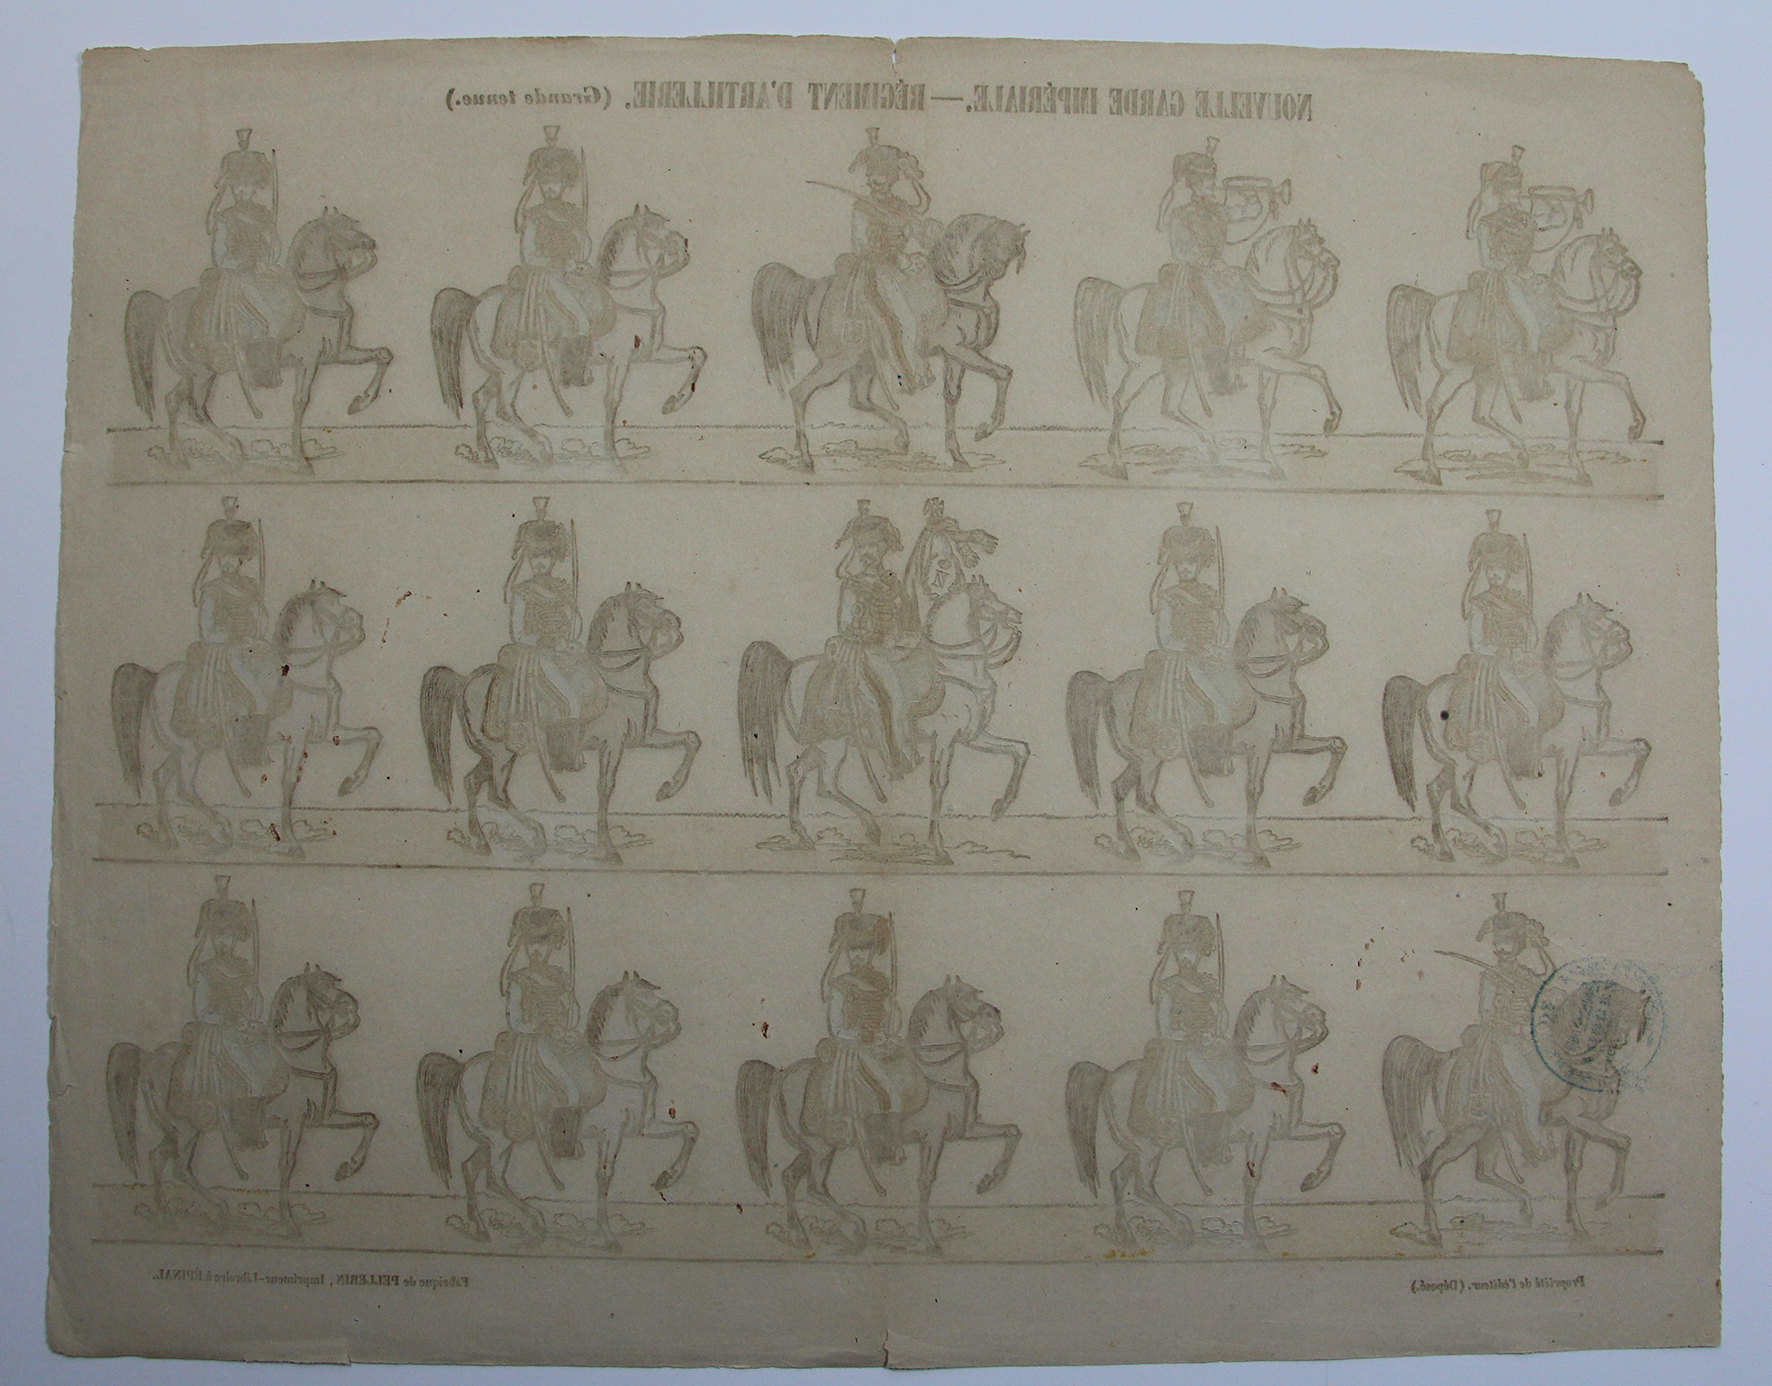 NOUVELLE GARDE IMPÉRIALE. — RÉGIMENT D'ARTILLERIE. (Grande tenue.)
N
Propriété de l'éditeur. (Déposé.)
Fabrique de PELLERIN, Imprimeur-Libraire à ÉPINAL.